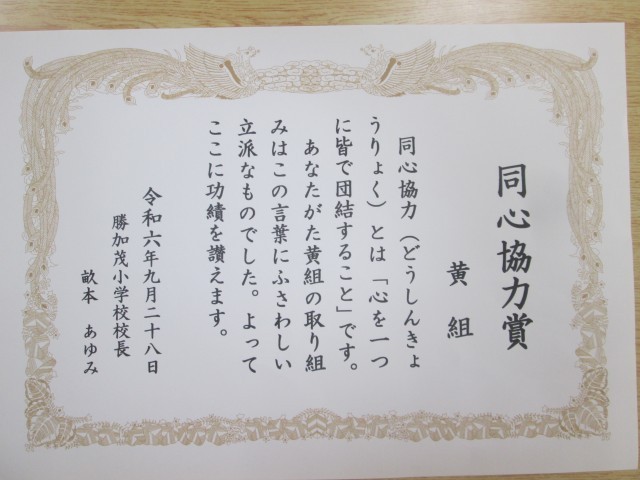 同心協力賞
黄組
同心協力（どうしんきょ
うりょく）とは「心を一つ
に皆で団結すること」です。
あなたがた黄組の取り組
みはこの言葉にふさわしい
立派なものでした。よって
ここに功績を讃えます。
令和六年九月二十八日
勝加茂小学校校長
畝本　あゆみ